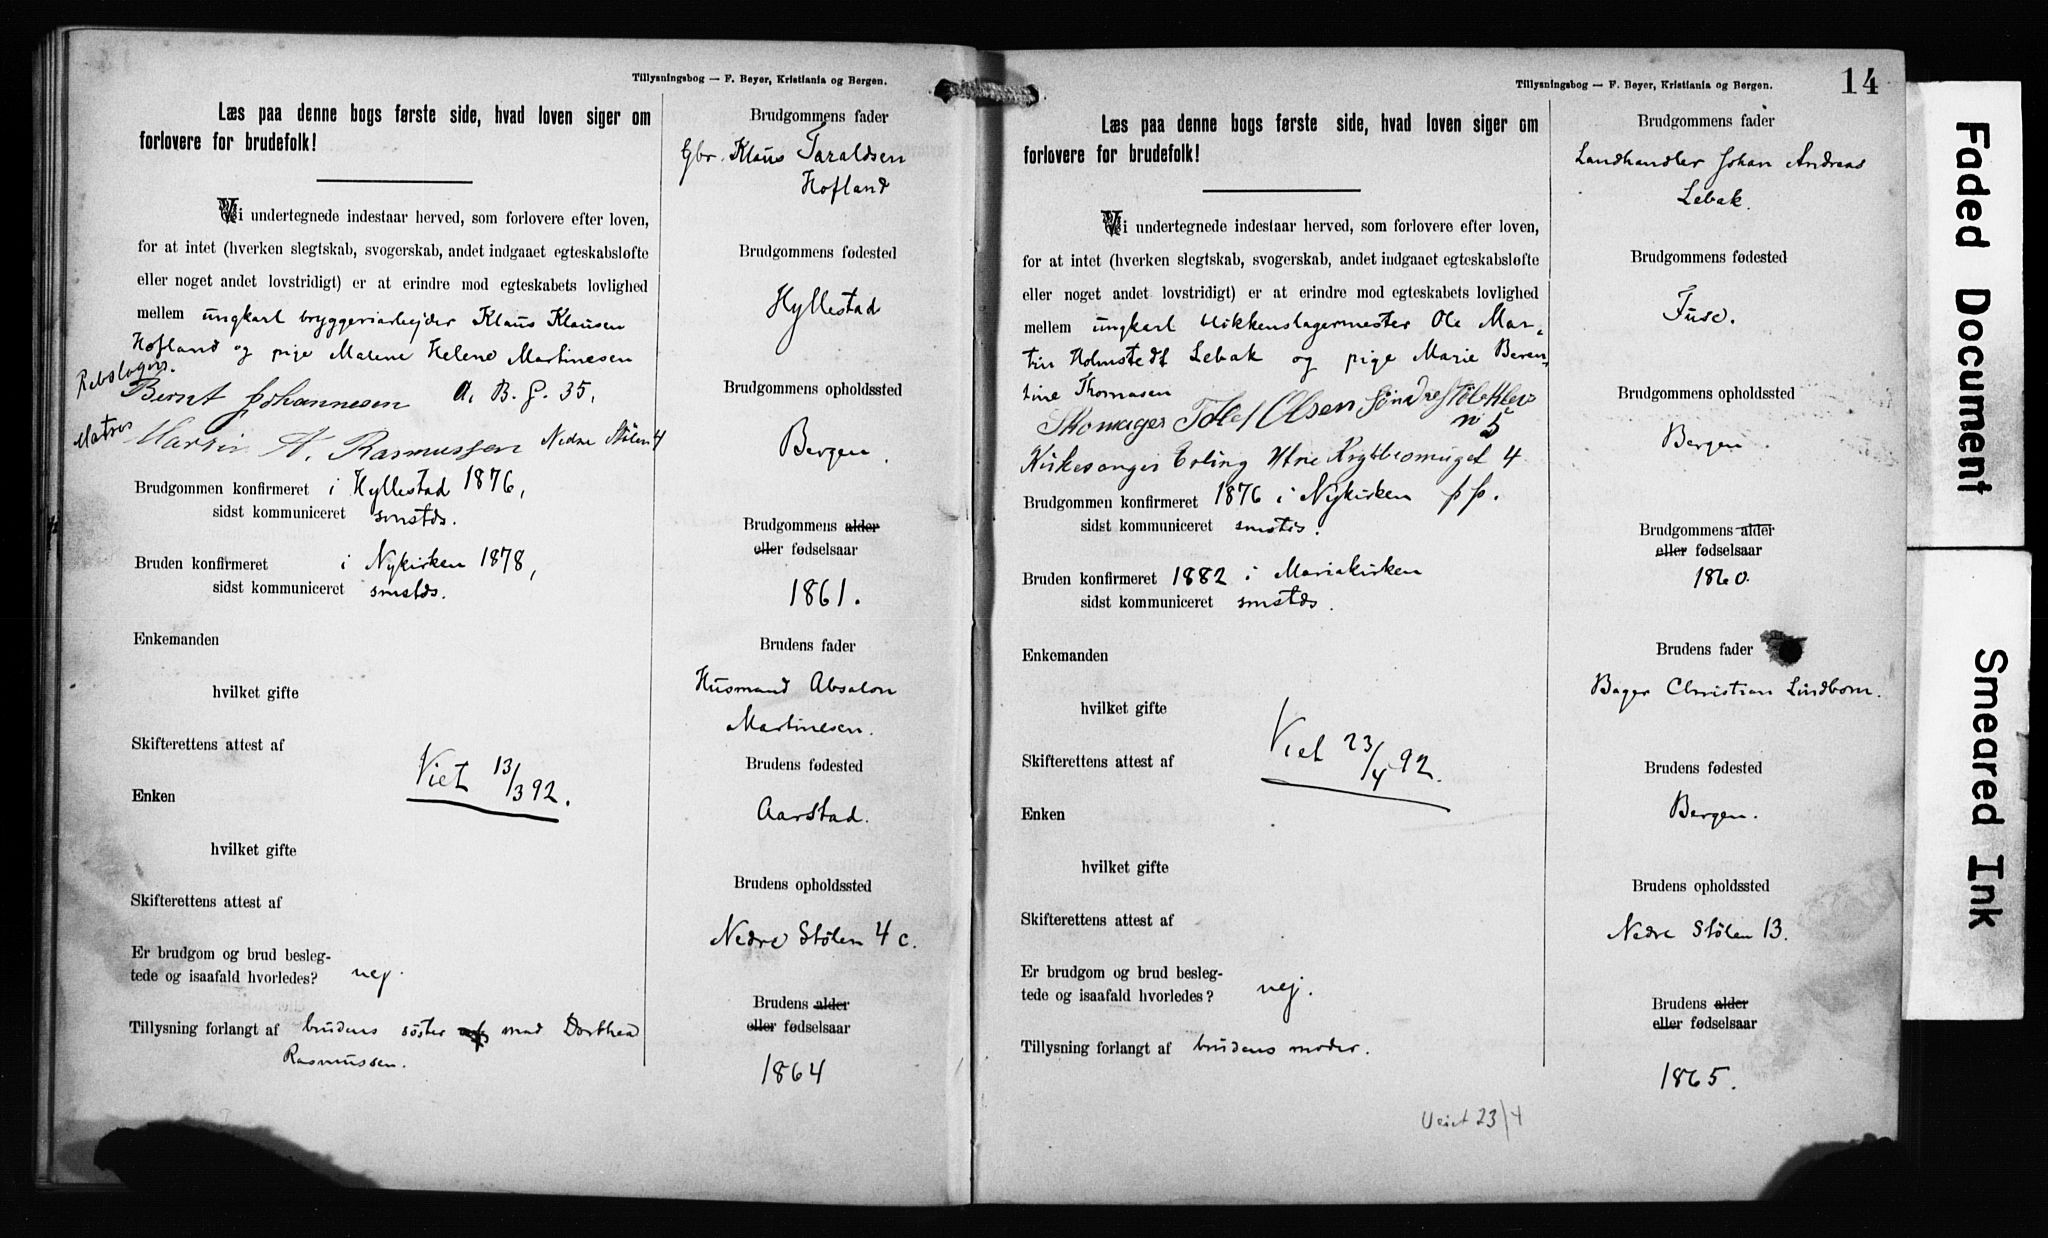 Tillysningsbog — F. Beyer, Kristiania og Bergen.
Læs paa denne bogs første side, hvad loven siger om
forlovere for brudefolk!
Vi undertegnede indestaar herved, som forlovere efter loven,
for at intet (hverken slegtskab, svogerskab, andet indgaaet egteskabsløfte
eller noget andet lovstridigt) er at erindre mod egteskabets lovlighed
mellem ungkarl bryggeriarbejder Klaus Klausen
Hofland og pige Malene Helene Martinesen
Rebslager.
Bernt Johannesen A. B. G. 35,
Matros
Martin A. Rasmussen Nedre Stølen 4
Brudgommen konfirmeret i Hyllestad 1876,
sidst kommuniceret smstds.
Bruden konfirmeret i Nykirken 1878,
sidst kommuniceret smstds.
Enkemanden
hvilket gifte
Skifterettens attest af
Viet 13/3 92.
Enken
hvilket gifte
Skifterettens attest af
Er brudgom og brud besleg-
tede og isaafald hvorledes? nej.
Tillysning forlangt af brudens søster mad Dorthea
Rasmussen.
Brudgommens fader
Gbr. Klaus Taraldsen
Hofland
Brudgommens fødested
Hyllestad
Brudgommens opholdssted
Bergen.
Brudgommens alder
eller fødselsaar
1861.
Brudens fader
Husmand Absalon
Martinesen.
Brudens fødested
Aarstad.
Brudens opholdssted
Nedre Stølen 4 c.
Brudens alder
eller fødselsaar
1864
Tillysningsbog — F. Beyer, Kristiania og Bergen.
14
Læs paa denne bogs første side, hvad loven siger om
forlovere for brudefolk!
Vi undertegnede indestaar herved, som forlovere efter loven,
for at intet (hverken slegtskab, svogerskab, andet indgaaet egteskabsløfte
eller noget andet lovstridigt) er at erindre mod egteskabets lovlighed
mellem ungkarl blikkenslagermester Ole Mar-
tin Holmstedt Lebak og pige Marie Beren-
tine Thomasen
Skomager Olsen Søndre Støleklev
no 5
Kirkesanger Erling 4
Brudgommen konfirmeret 1876 i Nykirken
sidst kommuniceret smstds.
Bruden konfirmeret 1882 i Mariakirken
sidst kommuniceret smstds.
Enkemanden
hvilket gifte
Skifterettens attest af
Viet 23/4 92.
Enken
hvilket gifte
Skifterettens attest af
Er brudgom og brud besleg-
tede og isaafald hvorledes? nej.
Tillysning forlangt af brudens moder.
Brudgommens fader
Landhandler Johan Andreas
Lebak.
Brudgommens fødested
Fuse.
Brudgommens opholdssted
Bergen.
Brudgommens alder
eller fødselsaar
1860.
Brudens fader
Bager Christian Lindbom.
Brudens fødested
Bergen.
Brudens opholdssted
Nedre Stølen 13.
Brudens alder
eller fødselsaar
1865.
23/4
Faded Document
Smeared Ink